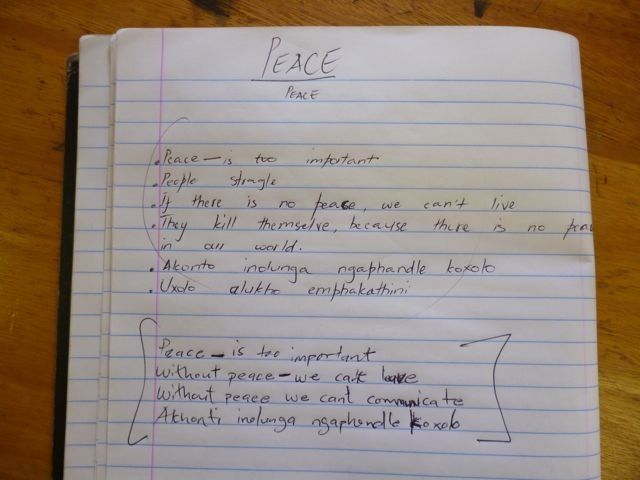 PEACE
PEACE
. Peace – is too important
. People stragle
. If there is no peace, we can't live
. They kill themselve, because there is no pea
in all world.
. Akonto inolunga ngaphandle koxolo
. Uxolo alukho emphakathini
Peace – is too important
Without peace – we can't
Without peace we cant communicate
Akhonti inolunga ngaphandle koxolo